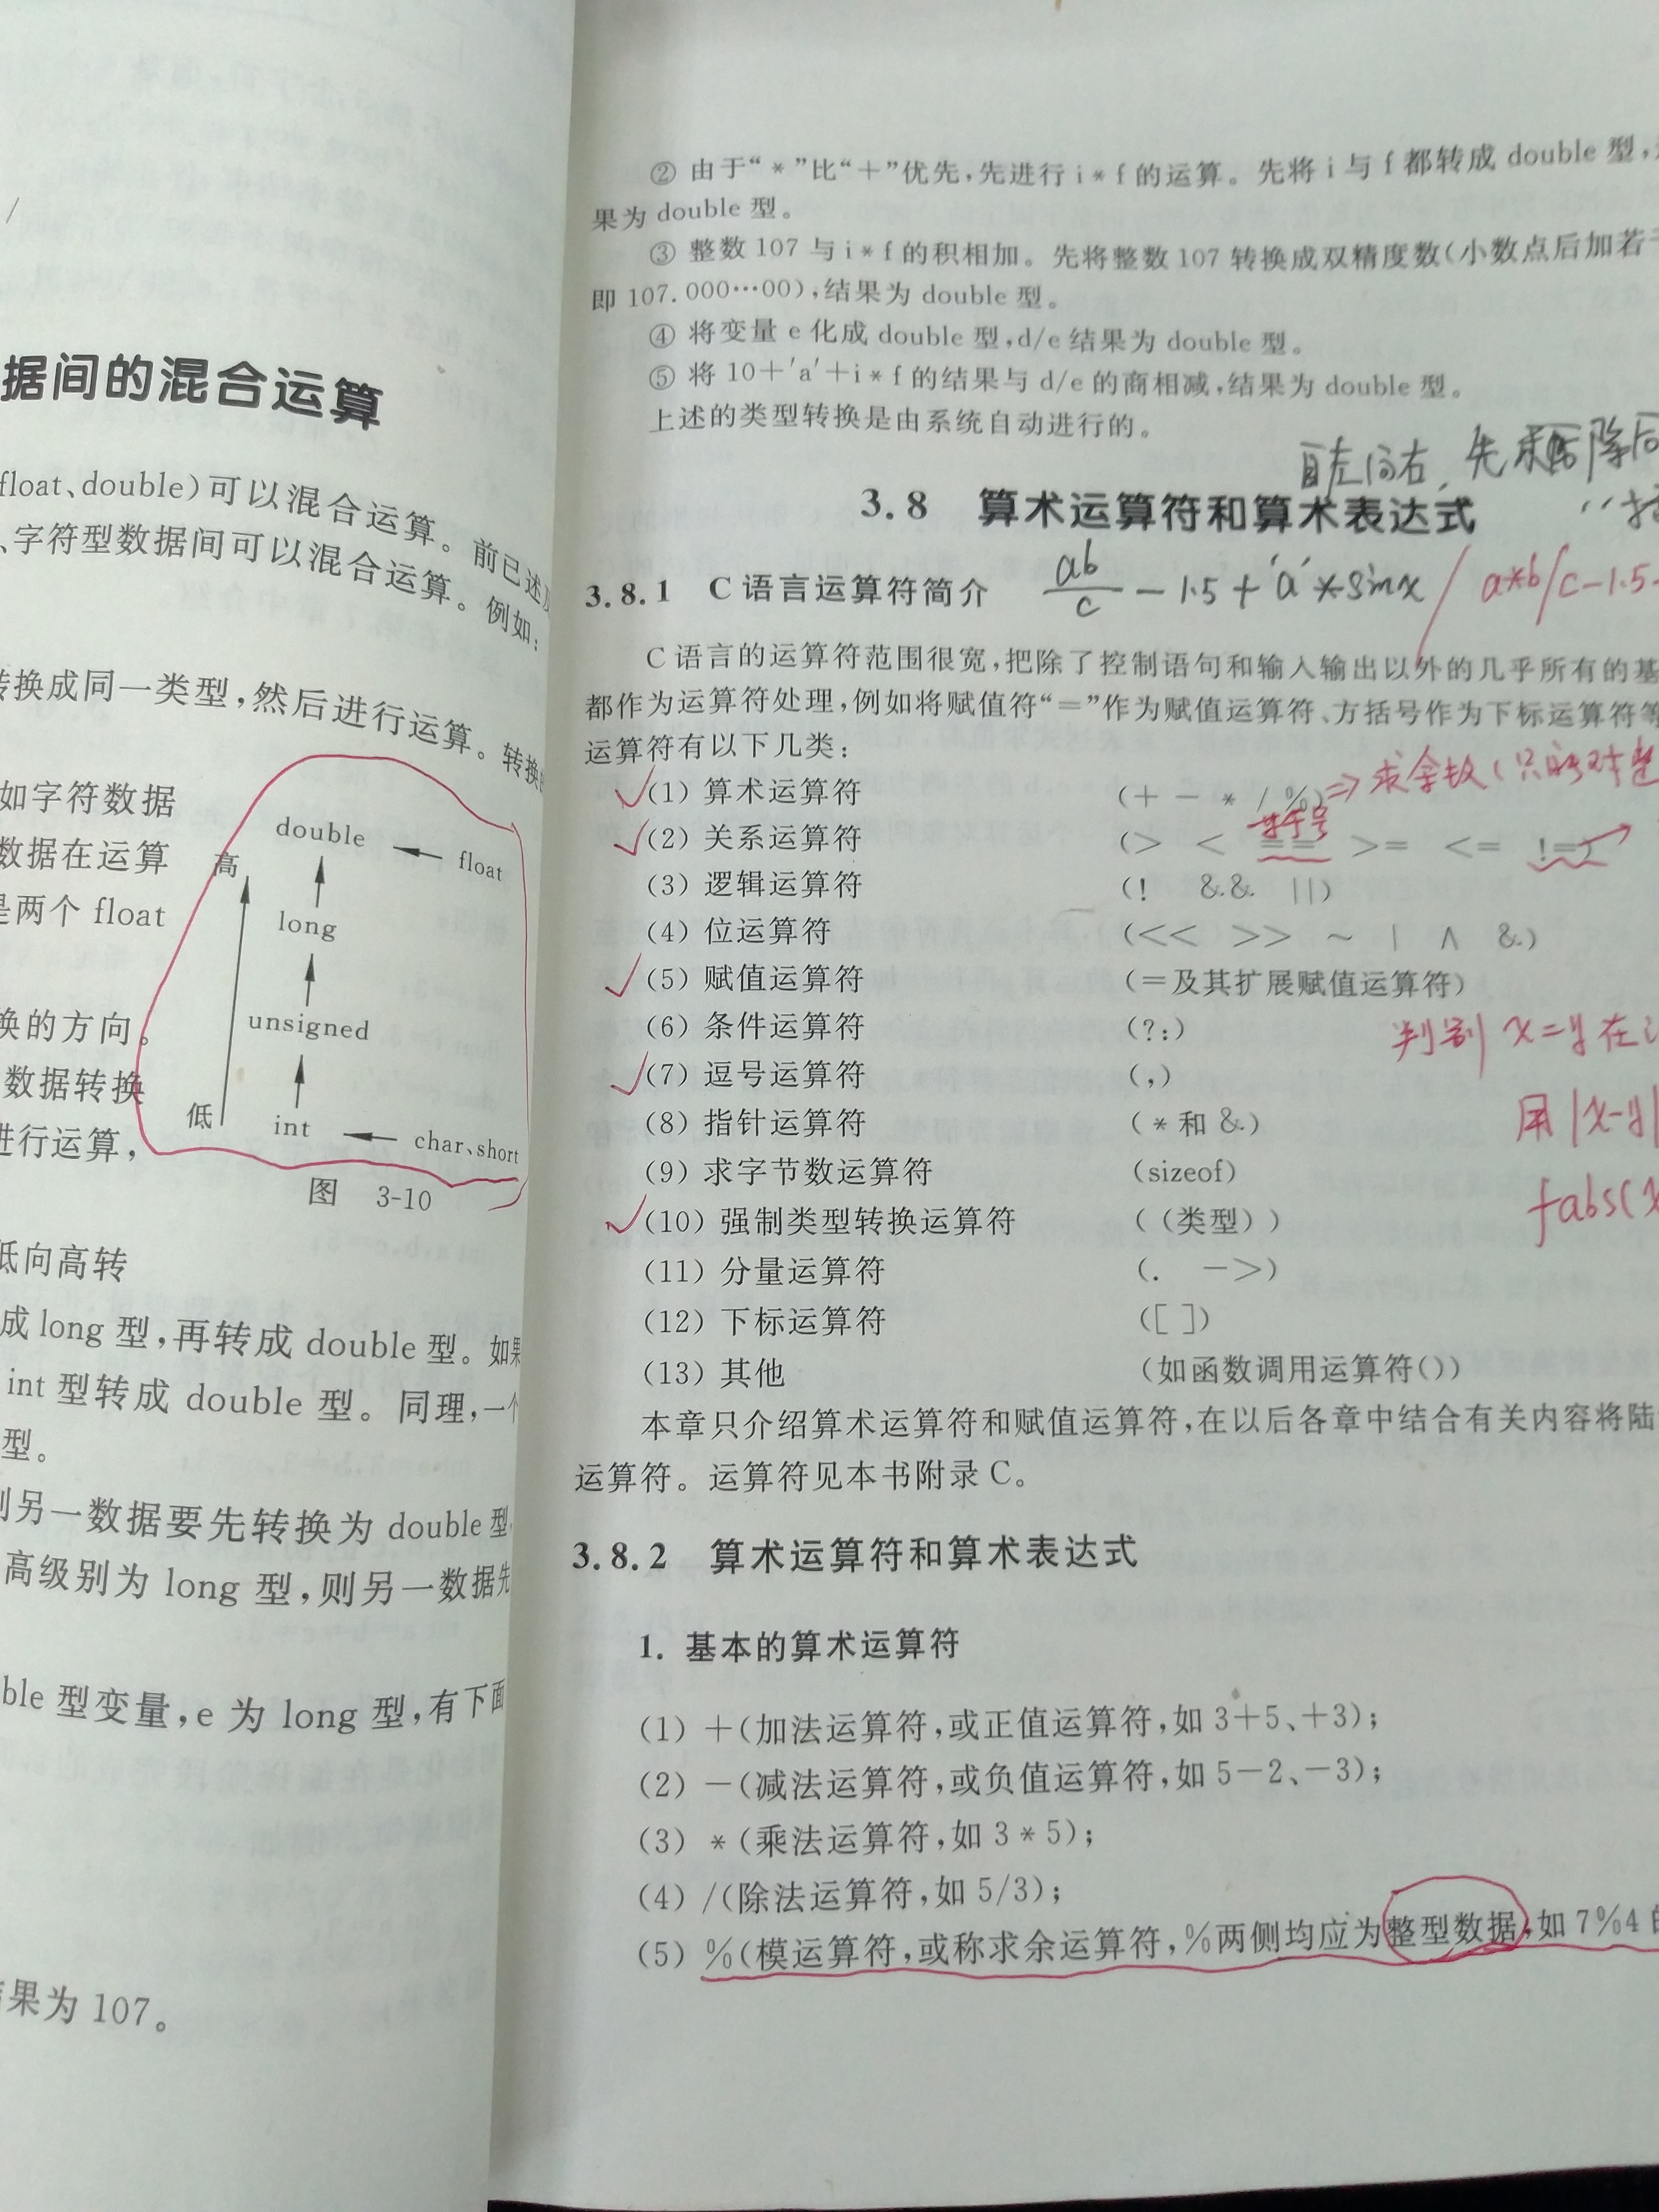 据间的混合运算
float、double)可以混合运算。前已述及
、字符型数据间可以混合运算。例如:
转换成同一类型,然后进行运算。转换的
如字符数据
数据在运算
是两个 float
换的方向。
数据转换
进行运算,
double
高
float
long
unsigned
低
int
char、short
图 3-10
低向高转
成 long 型,再转成 double 型。如果
int 型转成 double 型。同理,一个
型。
则另一数据要先转换为 double 型
高级别为 long 型,则另一数据先
ble 型变量,e 为 long 型,有下面
结果为 107。
② 由于“*”比“+”优先,先进行 i*f 的运算。先将 i 与 f 都转成 double 型,
果为 double 型。
③ 整数 107 与 i*f 的积相加。先将整数 107 转换成双精度数(小数点后加若干
即 107.000…00),结果为 double 型。
④ 将变量 e 化成 double 型,d/e 结果为 double 型。
⑤ 将 10+'a'+i*f 的结果与 d/e 的商相减,结果为 double 型。
上述的类型转换是由系统自动进行的。
自左向右,先乘除后
3.8 算术运算符和算术表达式
3.8.1 C 语言运算符简介
ab/c - 1.5 + 'a' * sinx / a*b/c-1.5-
C 语言的运算符范围很宽,把除了控制语句和输入输出以外的几乎所有的基
都作为运算符处理,例如将赋值符“=”作为赋值运算符、方括号作为下标运算符等
运算符有以下几类:
(1) 算术运算符 (+ - * / %) ⇒求余数(只能对整
等于号
(2) 关系运算符 (> < == >= <= !=)
(3) 逻辑运算符 (! && ||)
(4) 位运算符 (<< >> ~ | ∧ &)
(5) 赋值运算符 (=及其扩展赋值运算符)
(6) 条件运算符 (?:)
判别 x=y 在
(7) 逗号运算符 (,)
(8) 指针运算符 (*和 &)
用|x-y|
(9) 求字节数运算符 (sizeof)
fabs(x
(10) 强制类型转换运算符 ((类型))
(11) 分量运算符 (. ->)
(12) 下标运算符 ([ ])
(13) 其他 (如函数调用运算符())
本章只介绍算术运算符和赋值运算符,在以后各章中结合有关内容将陆
运算符。运算符见本书附录 C。
3.8.2 算术运算符和算术表达式
1. 基本的算术运算符
(1) +(加法运算符,或正值运算符,如 3+5、+3);
(2) -(减法运算符,或负值运算符,如 5-2、-3);
(3) *(乘法运算符,如 3*5);
(4) /(除法运算符,如 5/3);
(5) %(模运算符,或称求余运算符,%两侧均应为整型数据,如 7%4 的